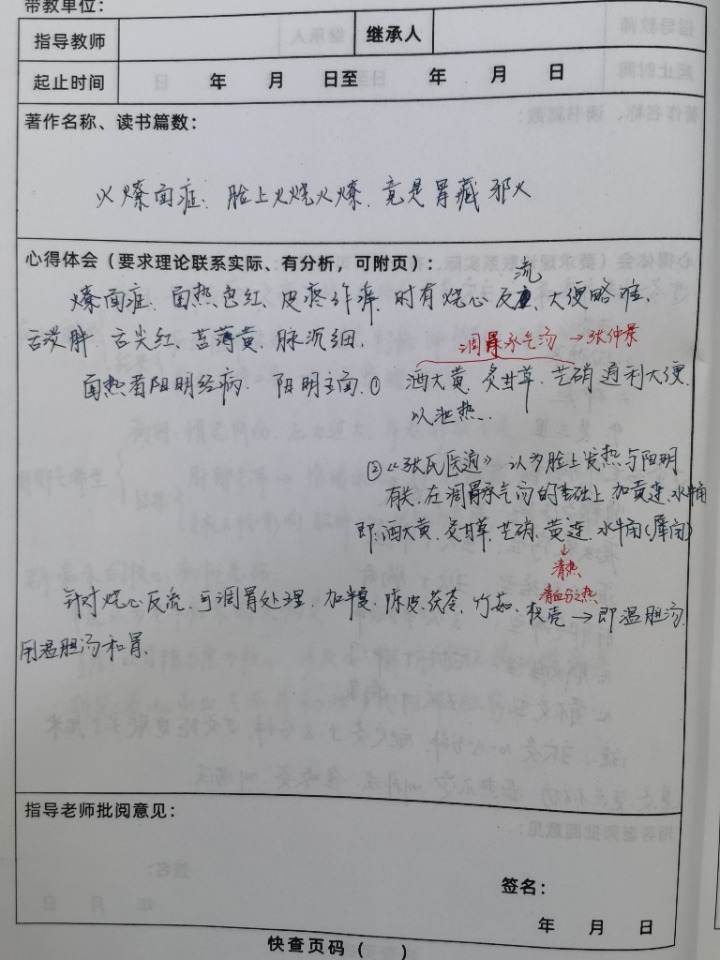 带教单位：
指导教师 继承人
起止时间 年 月 日至 年 月 日
著作名称、读书篇数：
火燎面症、脸上火烧火燎、竟是胃藏邪火
心得体会（要求理论联系实际、有分析，可附页）：
燎面症、面热色红、皮疼作痒、时有烧心反流、大便略难、
舌淡胖、舌尖红、苔薄黄、脉沉细.
调胃承气汤→张仲景
面热者阳明经病、阳明主面.① 酒大黄、炙甘草、芒硝通利大便、
以泄热.
②《张氏医通》认为脸上发热与阳明
有关、在调胃承气汤的基础上加黄连、水牛角
即：酒大黄、炙甘草、芒硝、黄连、水牛角（犀角）
清热
清血分之热
针对烧心反流、可调胃处理、加半夏、陈皮、茯苓、竹茹、枳壳→即温胆汤.
用温胆汤和胃.
指导老师批阅意见：
签名：
年 月 日
快查页码（ ）